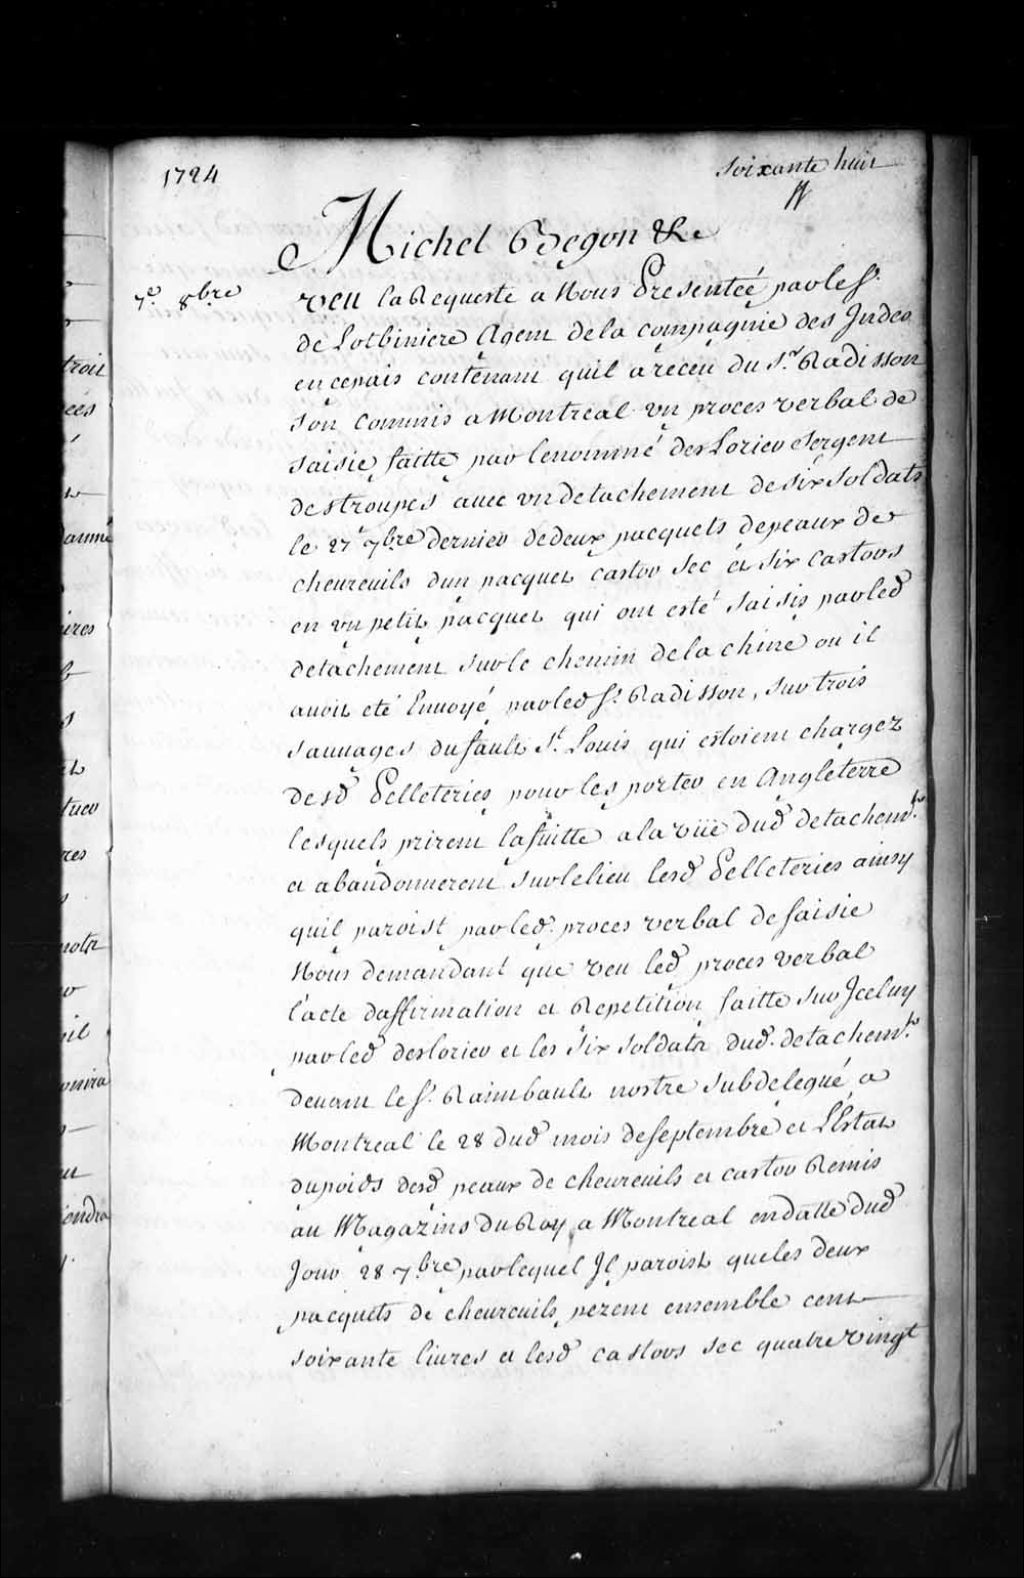 1724
soixante huit
Michel Begon &c.
7e. 8bre
Veu la Requeste a Nous Presenteé par le Sr.
de Lotbiniere Agent de la compagnie des Indes
en cepais contenant quil a receu du Sr. Radisson
son commis a Montreal un proces verbal de
saisie faitte par lenommé des Loriers sergent
destroupes avec un detachement de six soldats
le 27e 7bre dernier dedeux pacquets depeaux de
chevreuils dun pacquet castor sec et six castors
en un petit pacquet qui ont esté saisis parled
detachement sur le chemin de la chine ou il
avoit eté Envoyé parled Sr. Radisson, sur trois
sauvages du sault St. Louis qui estoient chargez
desd Pelleteries pour les porter en Angleterre
lesquels prirent la fuitte a la vüe dud detachemt.
et abandonnerent sur le lieu lesd Pelleteries ainsy
quil paroist par led. proces verbal de saisie
Nous demandant que veu led proces verbal
l'acte daffirmation et Repetition faitte sur Iceluy
par led deslorier et les six soldats dud. detachemt.
devant le Sr. Raimbault nostre subdelegué a
Montreal le 28 dud mois de septembre et L'Estat
du poids desd peaux de chevreuils et castor Remis
au Magazins Du Roy a Montreal en datte dud
Jour 28 7bre par lequel Il paroist que les deux
pacquets de chevreuils pezent ensemble cent
soixante livres et lesd castors sec quatre vingt
troit
ées
é
ires
s
tuer
res
notr
oil
endra